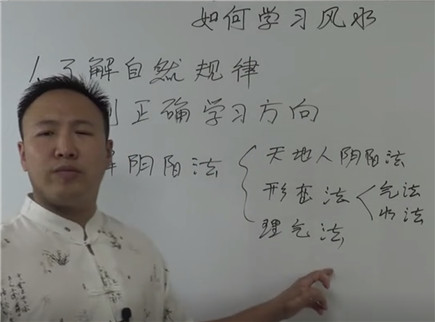 如何学习风水
1、了解自然规律
正确学习方向
阴阳法
天地人阴阳法
形峦法 气法
水法
理气法